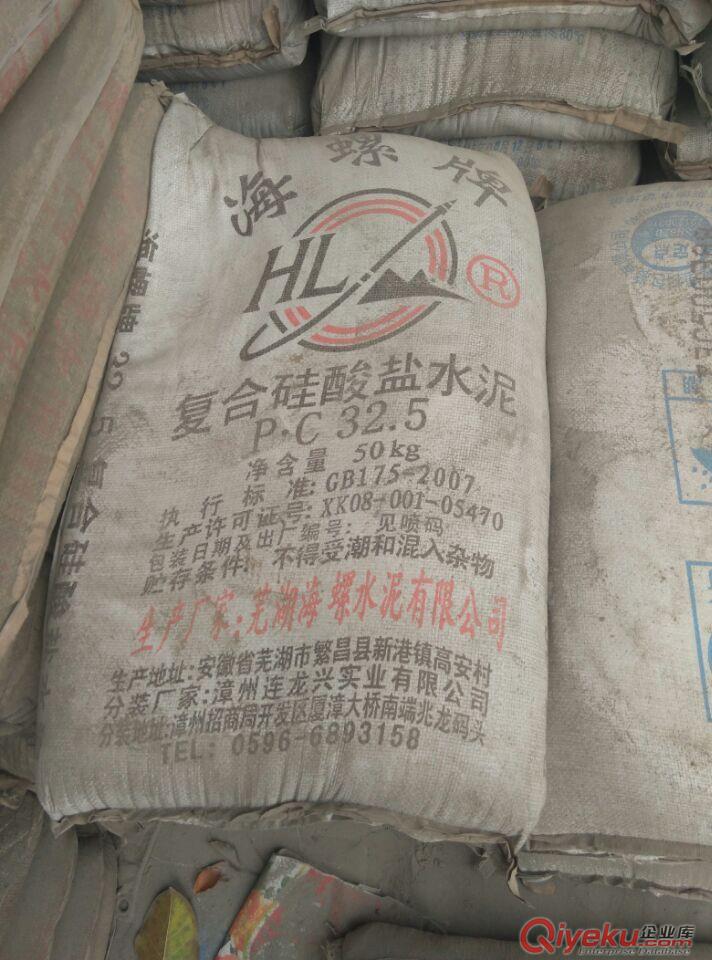 海螺牌
HL
R
复合硅酸盐水泥
P·C 32.5
净含量 50kg
执行标准:GB175-2007
生产许可证号:XK08-001-05470
包装日期及出厂编号:见喷码
贮存条件:不得受潮和混入杂物
生产厂家:芜湖海螺水泥有限公司
生产地址:安徽省芜湖市繁昌县新港镇高安村
分装厂家:漳州连龙兴实业有限公司
分装地址:漳州招商局开发区厦漳大桥南端兆龙码头
TEL: 0596-6893158
海螺牌32.5复合硅酸
Qiyeku.com 企业库
Enterprise Database